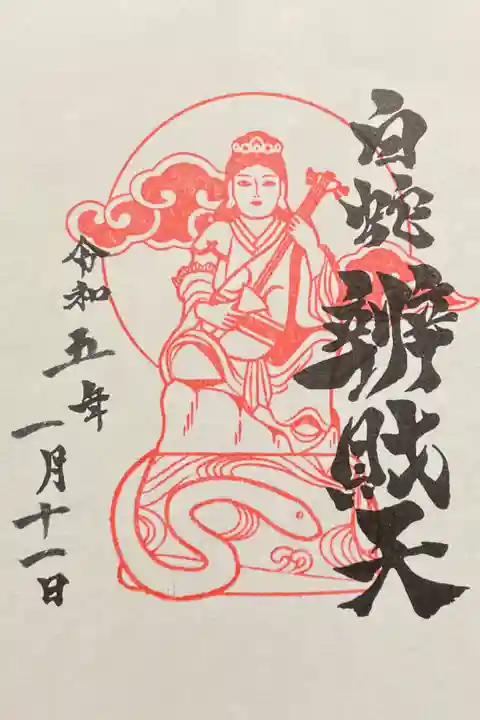 白蛇辨財天
令和五年一月十一日